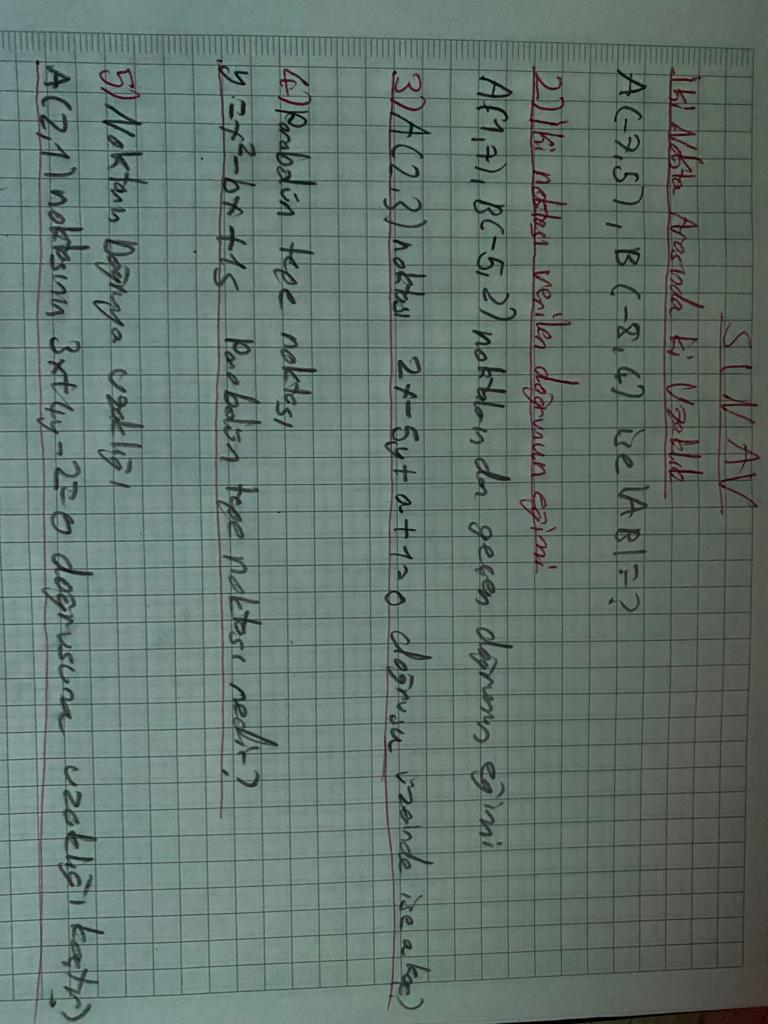 SINAV
1) İki Nokta Arasında ki Uzaklık
A(-7,5), B(-8,6) ise |AB|=?
2) İki noktası verilen doğrunun eğimi
A(1,7), B(-5,2) noktalarından geçen doğrunun eğimi
3) A(2,3) noktası 2x-5y+a+1=0 doğrusu üzerinde ise a kaç?
4) Parabolün tepe noktası
y=x²-6x+15 Parabolün tepe noktası nedir?
5) Noktanın Doğruya uzaklığı
A(2,1) noktasının 3x+4y-2=0 doğrusuna uzaklığı kaçtır?